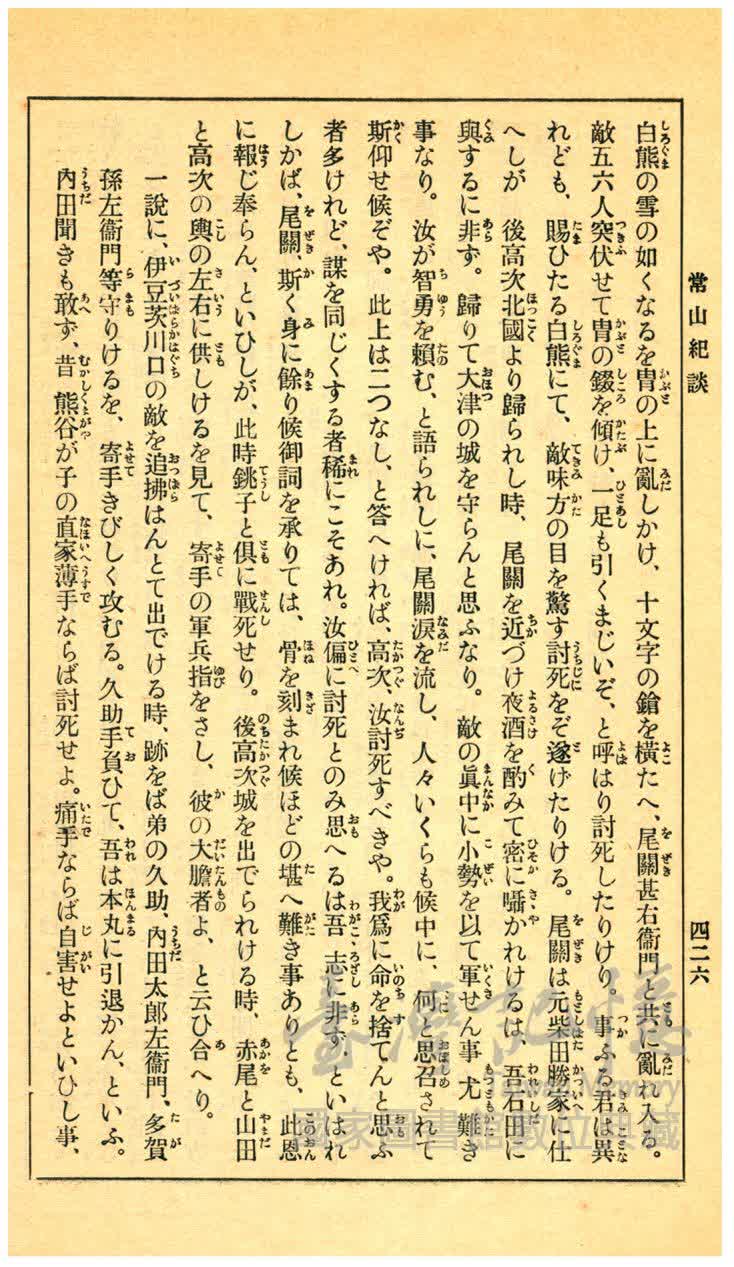 常山紀談
四二六
白熊の雪の如くなるを冑の上に亂しかけ、十文字の鎗を橫たへ、尾關甚右衞門と共に亂れ入る。
敵五六人突伏せて冑の錣を傾け、一足も引くまじいぞ、と呼はり討死したりけり。事ふる君は異
れども、賜ひたる白熊にて、敵味方の目を驚す討死をぞ遂げたりける。尾關は元柴田勝家に仕
へしが　後高次北國より歸られし時、尾關を近づけ夜酒を酌みて密に囁かれけるは、吾石田に
與するに非ず。歸りて大津の城を守らんと思ふなり。敵の眞中に小勢を以て軍せん事尤難き
事なり。汝が智勇を賴む、と語られしに、尾關淚を流し、人々いくらも候中に、何と思召されて
斯仰せ候ぞや。此上は二つなし、と答へければ、高次、汝討死すべきや。我爲に命を捨てんと思ふ
者多けれど、謀を同じくする者稀にこそあれ。汝偏に討死とのみ思へるは吾志に非ず、といはれ
しかば、尾關、斯く身に餘り候御詞を承りては、骨を刻まれ候ほどの堪へ難き事ありとも、此恩
に報じ奉らん、といひしが、此時銚子と俱に戰死せり。後高次城を出でられける時、赤尾と山田
と高次の輿の左右に供しけるを見て、寄手の軍兵指をさし、彼の大膽者よ、と云ひ合へり。
一說に、伊豆茨川口の敵を追拂はんとて出でける時、跡をば弟の久助、內田太郎左衞門、多賀
孫左衞門等守りけるを、寄手きびしく攻むる。久助手負ひて、吾は本丸に引退かん、といふ。
內田聞きも敢ず、昔熊谷が子の直家薄手ならば討死せよ。痛手ならば自害せよといひし事、